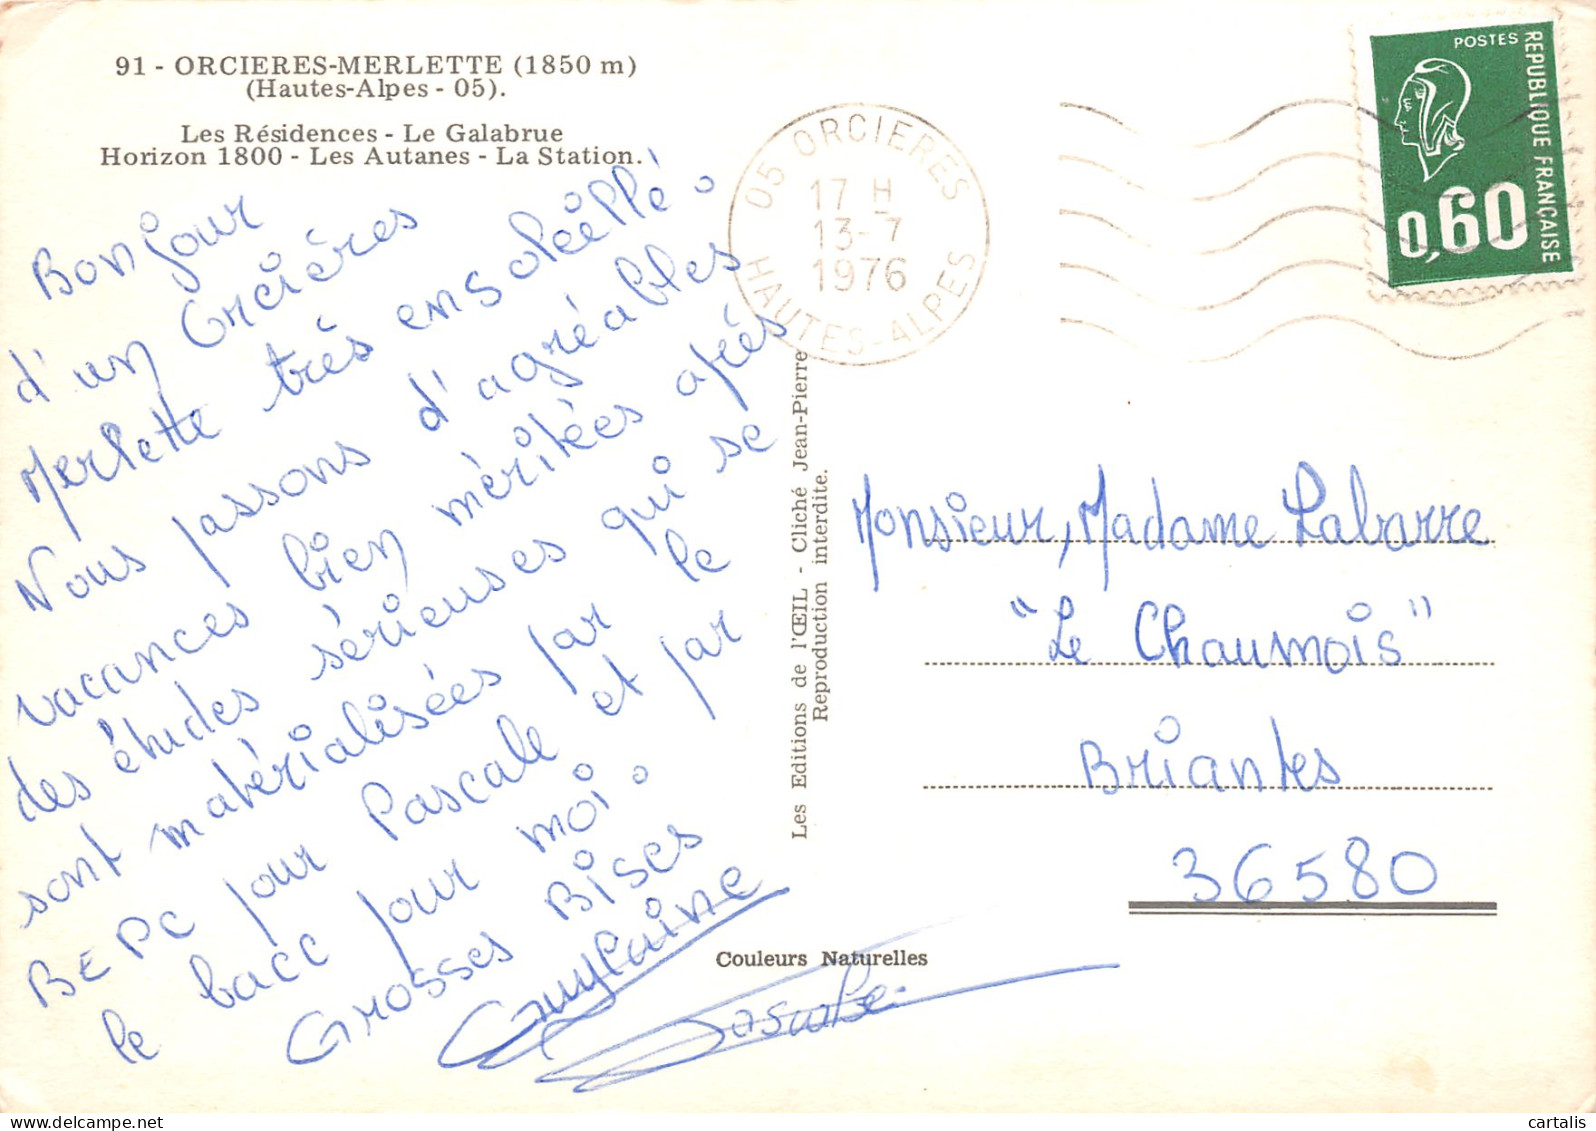 91 - ORCIERES-MERLETTE (1850 m)
(Hautes-Alpes - 05).
Les Résidences - Le Galabrue
Horizon 1800 - Les Autanes - La Station.
Bonjour
d'un Orcières
Merlette très ensoleillé.
Nous passons d'agréables
vacances bien méritées après
des études sérieuses qui se
sont matérialisées par le
BEPC pour Pascale et par
le bacc pour moi.
Grosses Bises
Guylaine
05 ORCIERES
17 H
13-7
1976
HAUTES-ALPES
POSTES
REPUBLIQUE FRANÇAISE
0,60
Les Editions de l'ŒIL - Cliché Jean-Pierre
Reproduction interdite.
Monsieur, Madame Labarre
"Le Chaumois"
Briantes
36580
Couleurs Naturelles
cartalis
delcampe.net